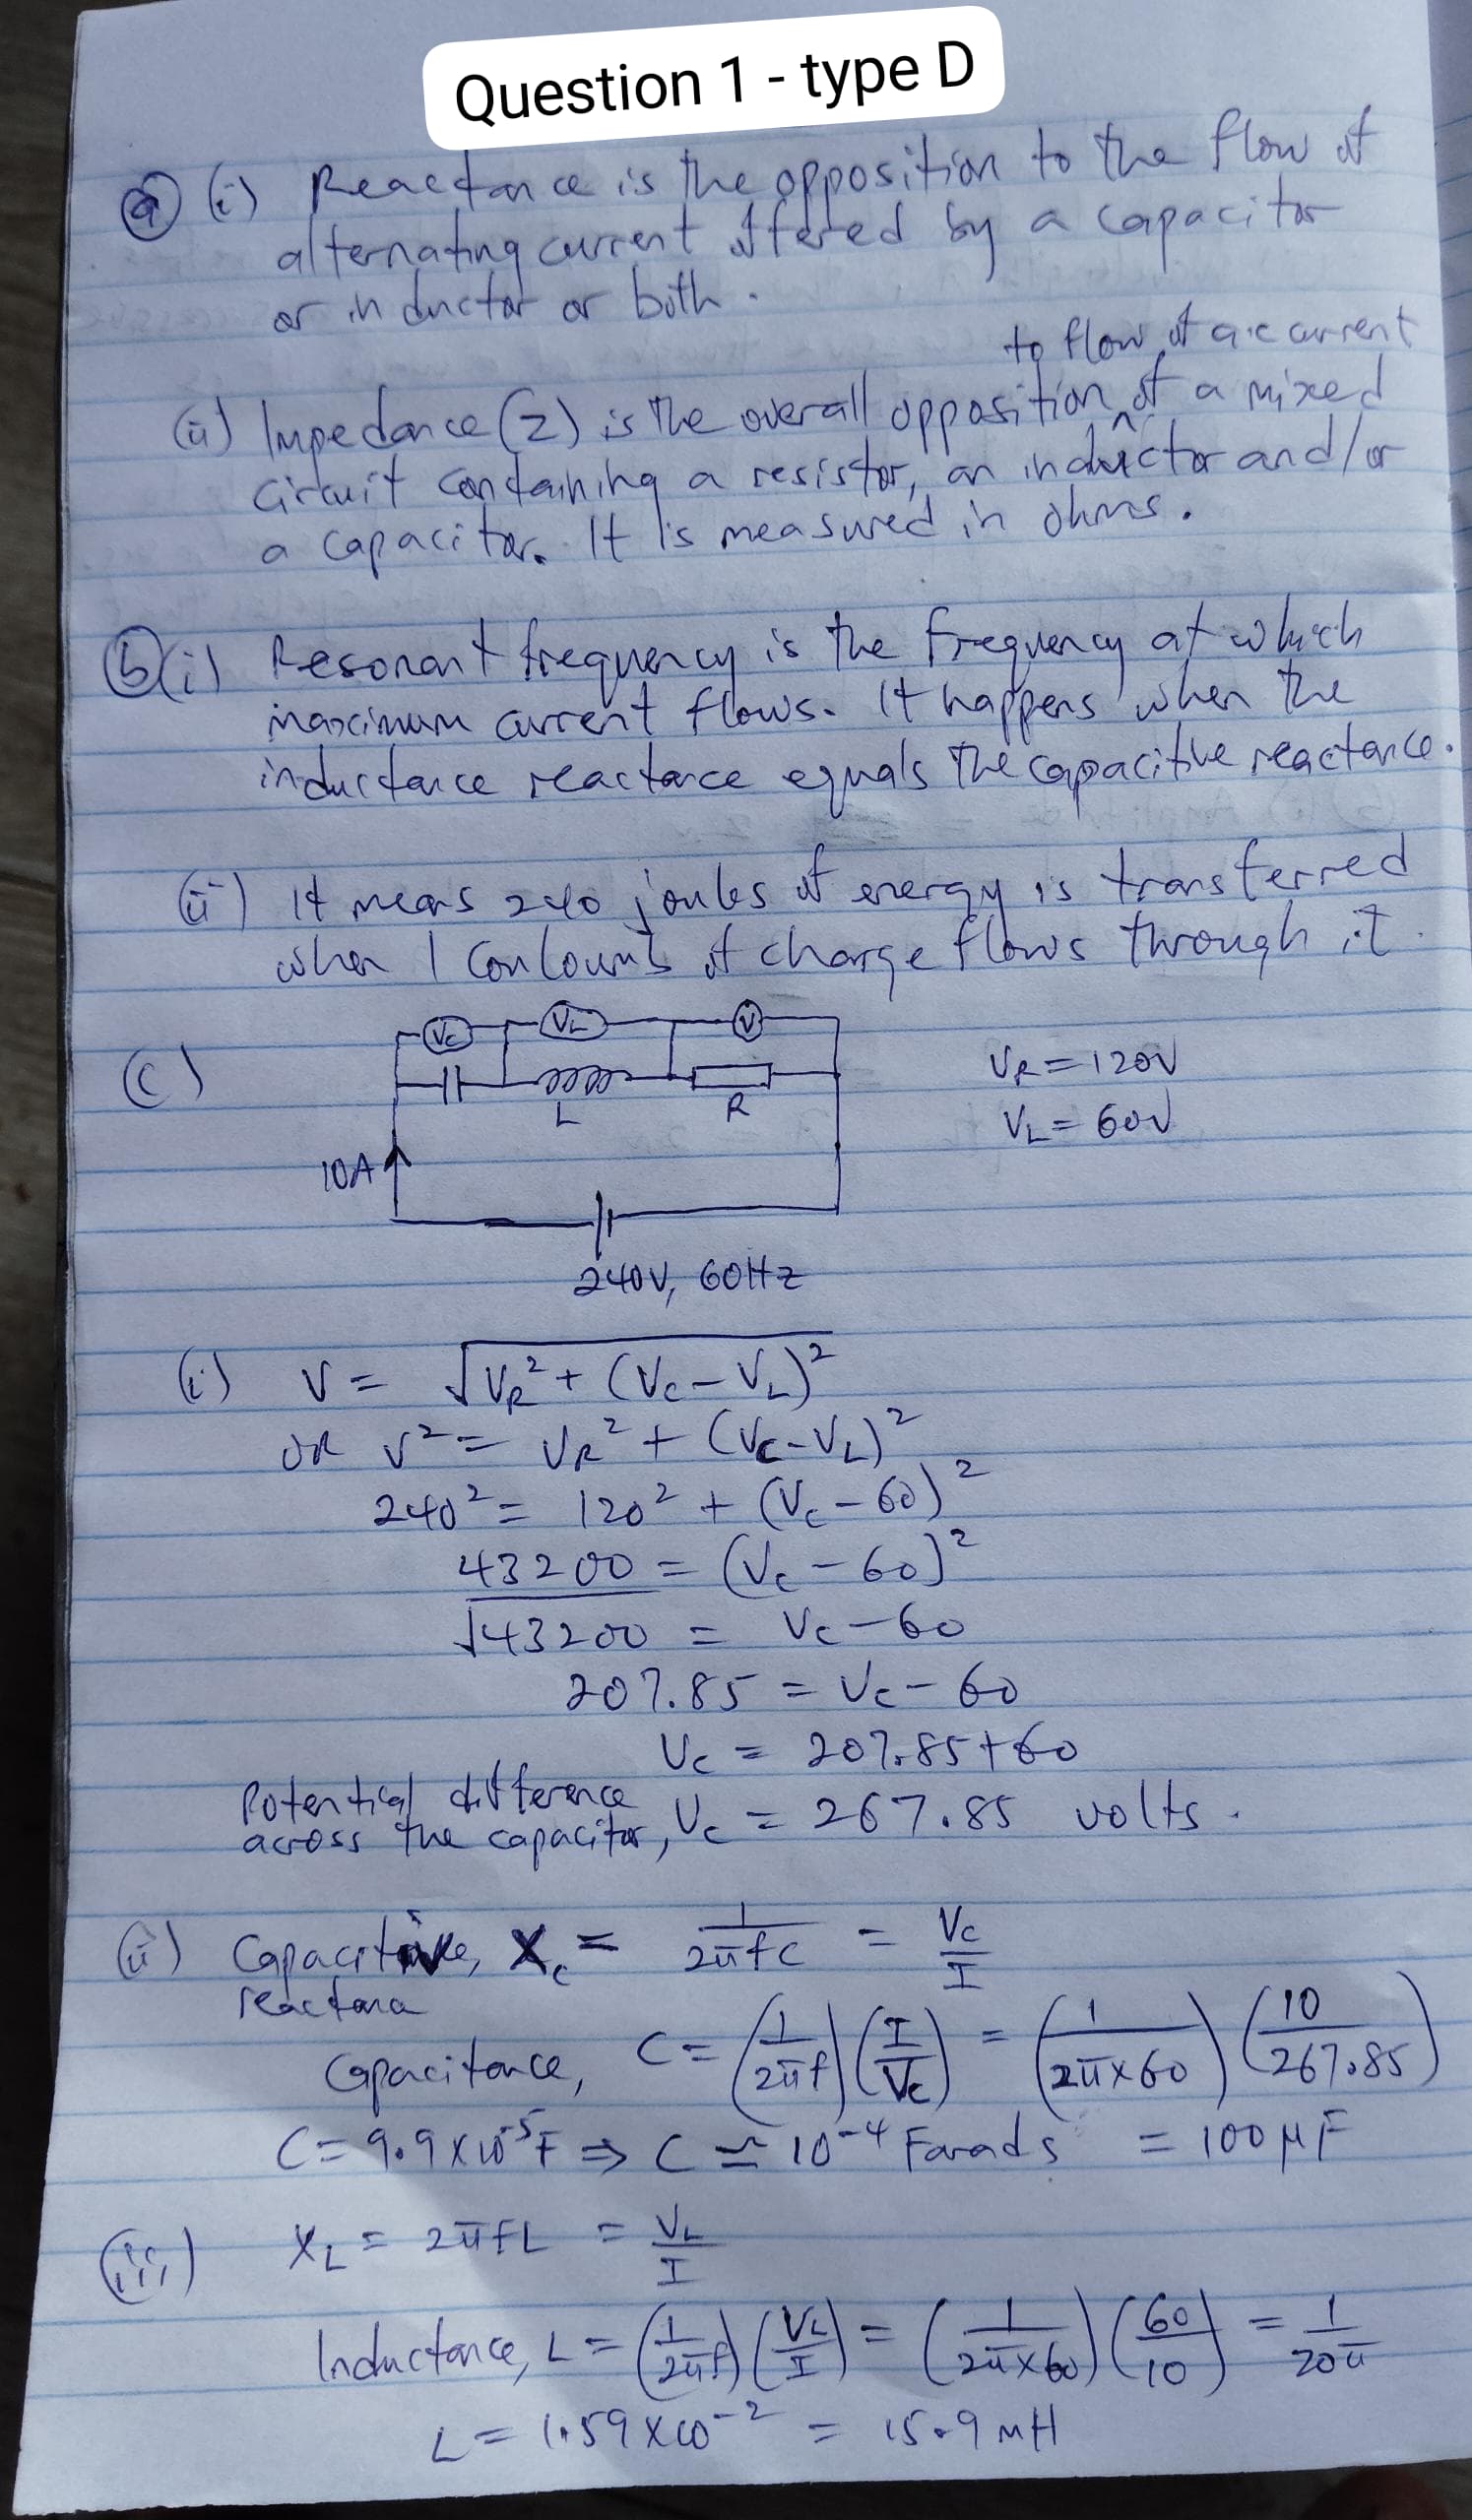 Question 1 - type D
(a) (i) Reactance is the opposition to the flow of
alternating current offered by a capacitor
or inductor or both.
to flow of a.c current
(ii) Impedance (Z) is the overall opposition ^ of a mixed
circuit containing a resistor, an inductor and/or
a capacitor. It is measured in ohms.
(b) (i) Resonant frequency is the frequency at which
maximum current flows. It happens when the
inductance reactance equals the capacitive reactance.
(ii) It means 240 joules of energy is transferred
when 1 Coulomb of charge flows through it.
(c)
Vc VL V
L R
VR = 120V
VL = 60V
10A
240V, 60Hz
(i) V = √(VR² + (Vc - VL)²)
OR V² = VR² + (Vc - VL)²
240² = 120² + (Vc - 60)²
43200 = (Vc - 60)²
√43200 = Vc - 60
207.85 = Vc - 60
Vc = 207.85 + 60
Potential difference
across the capacitor, Vc = 267.85 volts.
(ii) Capacitive, Xc = 1/2πfC = Vc/I
reactance
Capacitance, C = (1/2πf)(I/Vc) = (1/2π×60)(10/267.85)
C = 9.9 × 10⁻⁵F ⇒ C ≃ 10⁻⁴ Farads = 100 μF
(iii) XL = 2πfL = VL/I
Inductance, L = (1/2πf)(VL/I) = (1/2π×60)(60/10) = 1/20π
L = 1.59 × 10⁻² = 15.9 mH